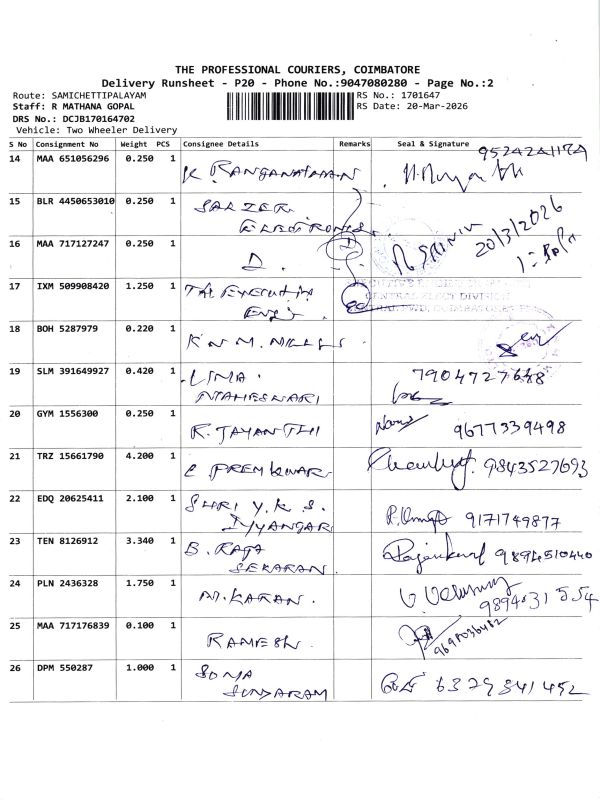 THE PROFESSIONAL COURIERS, COIMBATORE
Delivery Runsheet - P20 - Phone No.:9047080280 - Page No.:2
Route: SAMICHETTIPALAYAM
RS No.: 1701647
Staff: R MATHANA GOPAL
RS Date: 20-Mar-2026
DRS No.: DCJB170164702
Vehicle: Two Wheeler Delivery
S No Consignment No Weight PCS Consignee Details Remarks Seal & Signature
14 MAA 651056296 0.250 1 K RANGANATHAN
15 BLR 4450653010 0.250 1 SALZER
ELECTRONICS
20/3/2026
16 MAA 717127247 0.250 1 D.
17 IXM 509908420 1.250 1 THE EXECUTIVE
ENGR.
CENTRAL ELECT DIVISION
18 BOH 5287979 0.220 1 K N M. MILLS
19 SLM 391649927 0.420 1 UMA
MAHESWARI
20 GYM 1556300 0.250 1 K. JAYANTHI 9677339498
21 TRZ 15661790 4.200 1 C PREMKUMAR 9843527693
22 EDQ 20625411 2.100 1 SHRI Y. K. S. 9171749877
IYYANGAR
23 TEN 8126912 3.340 1 B. RAJA 9894510440
SEKARAN
24 PLN 2436328 1.750 1 M. KARAN.
25 MAA 717176839 0.100 1 RAMESH. 9698036482
26 DPM 550287 1.000 1 SOMA 6329841452
SUNDARAM